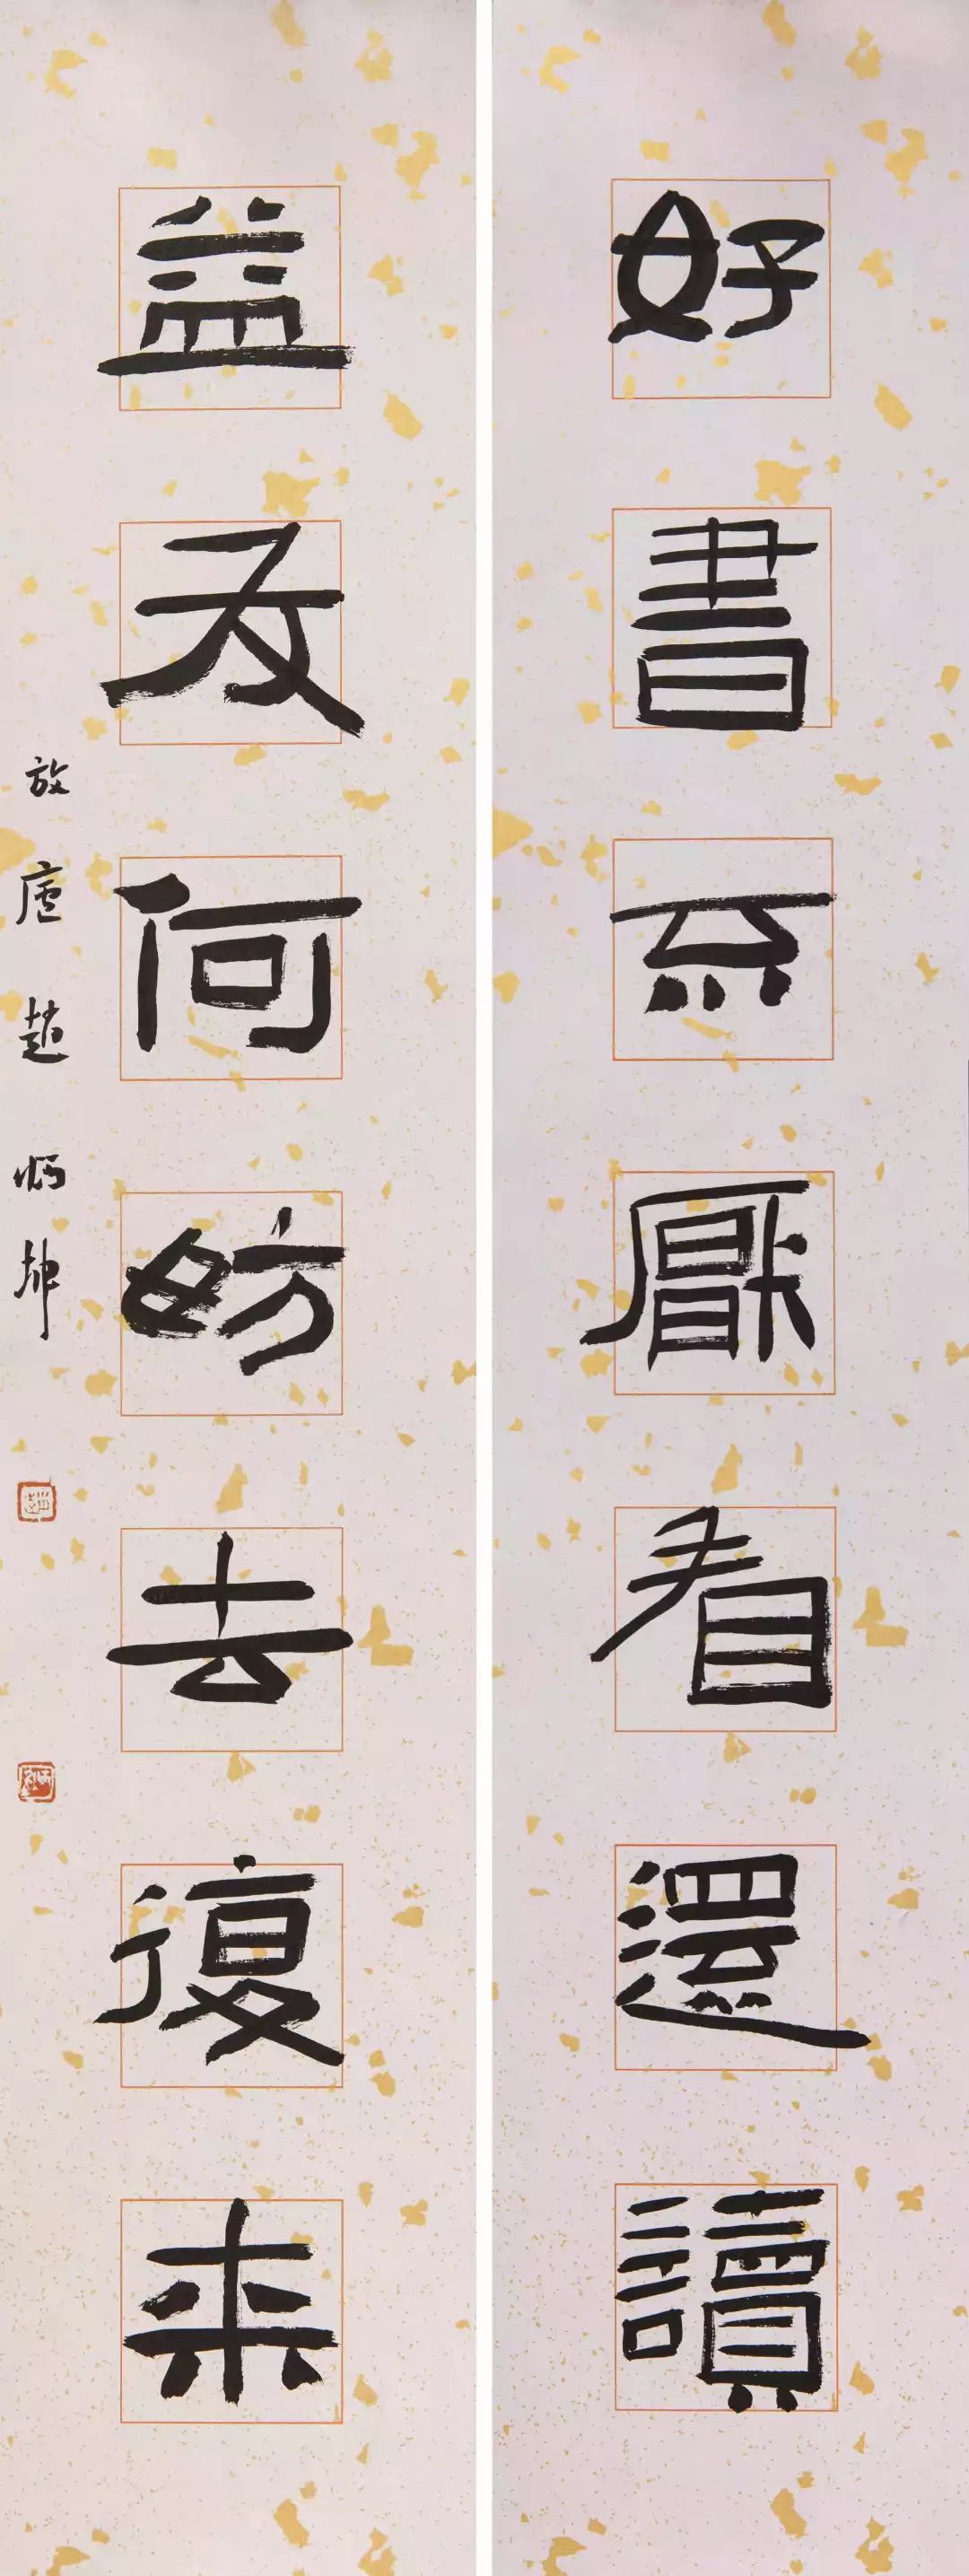 好書不厭看還讀
益友何妨去復來
放廬趙炳坤